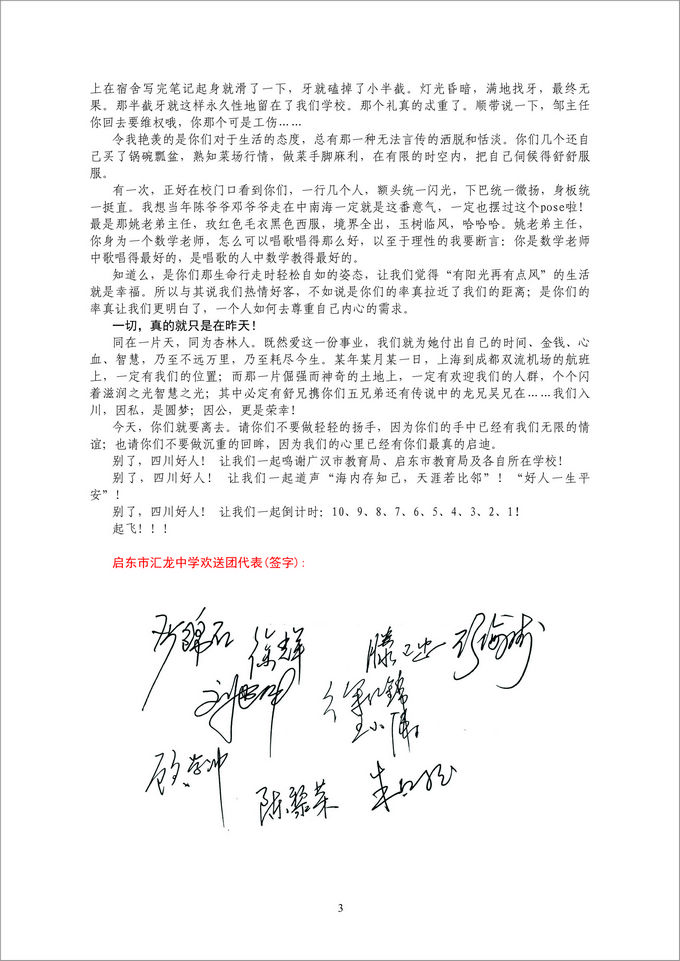 上在宿舍写完笔记起身就滑了一下，牙就磕掉了小半截。灯光昏暗，满地找牙，最终无
果。那半截牙就这样永久性地留在了我们学校。那个礼真的忒重了。顺带说一下，邹主任
你回去要维权哦，你那个可是工伤……
令我艳羡的是你们对于生活的态度，总有那一种无法言传的洒脱和恬淡。你们几个还自
己买了锅碗瓢盆，熟知菜场行情，做菜手脚麻利，在有限的时空内，把自己伺候得舒舒服
服。
有一次，正好在校门口看到你们，一行几个人，额头统一闪光，下巴统一微扬，身板统
一挺直。我想当年陈爷爷邓爷爷走在中南海一定就是这番意气，一定也摆过这个pose啦！
最是那姚老弟主任，玫红色毛衣黑色西服，境界全出，玉树临风，哈哈哈。姚老弟主任，
你身为一个数学老师，怎么可以唱歌唱得那么好，以至于理性的我要断言：你是数学老师
中歌唱得最好的，是唱歌的人中数学教得最好的。
知道么，是你们那生命行走时轻松自如的姿态，让我们觉得“有阳光再有点风”的生活
就是幸福。所以与其说我们热情好客，不如说是你们的率真拉近了我们的距离；是你们的
率真让我们更明白了，一个人如何去尊重自己内心的需求。
一切，真的就只是在昨天！
同在一片天，同为杏林人。既然爱这一份事业，我们就为她付出自己的时间、金钱、心
血、智慧，乃至不远万里，乃至耗尽今生。某年某月某一日，上海到成都双流机场的航班
上，一定有我们的位置；而那一片倔强而神奇的土地上，一定有欢迎我们的人群，个个闪
着滋润之光智慧之光；其中必定有舒兄携你们五兄弟还有传说中的龙兄吴兄在……我们入
川，因私，是圆梦；因公，更是荣幸！
今天，你们就要离去。请你们不要做轻轻的扬手，因为你们的手中已经有我们无限的情
谊；也请你们不要做沉重的回眸，因为我们的心里已经有你们最真的启迪。
别了，四川好人！ 让我们一起鸣谢广汉市教育局、启东市教育局及各自所在学校！
别了，四川好人！ 让我们一起道声“海内存知己，天涯若比邻”！“好人一生平
安”！
别了，四川好人！ 让我们一起倒计时：10、9、8、7、6、5、4、3、2、1！
起飞！！！
启东市汇龙中学欢送团代表(签字)：
徐辉
王小伟
顾学冲
陈黎荣
3